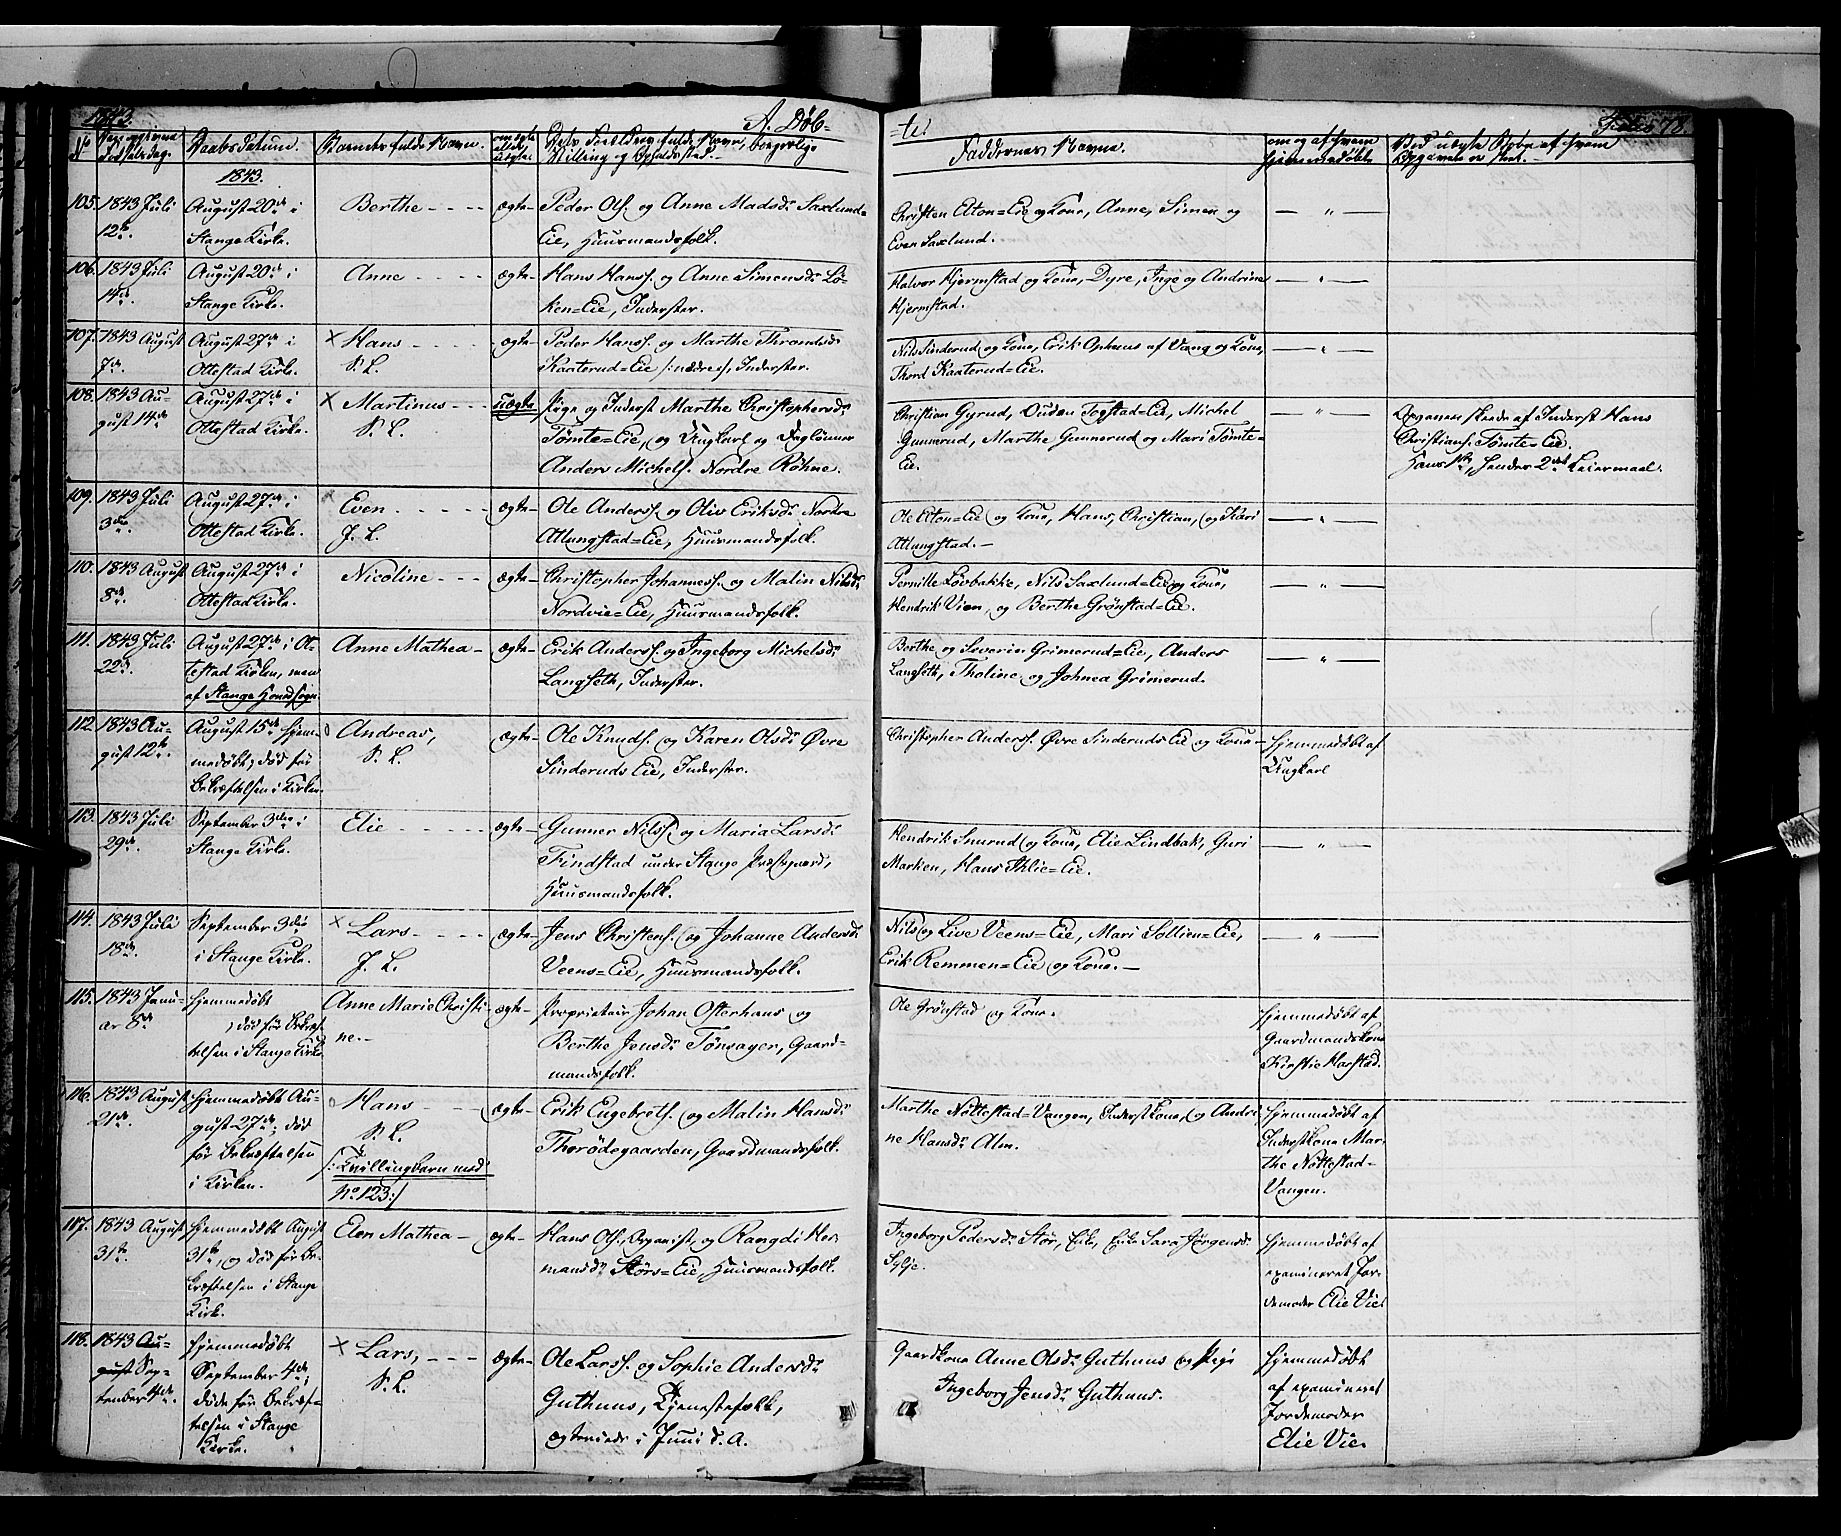 1843.
A. Døb-
-te.
Folio 78.
No
Barnets fulde Navn.
Daabs Datum.
Faddernes Navne.
1843.
105. 1843 Juli 12te. August 20de i Stange Kirke. Berthe ægte Peder Ols. og Anne Madsdr Saxlund=
Eie, Huusmandsfolk.
Christen Aton=Eie og Kone, Anne, Simen og
Even Saxlund.
106. 1843 Juli 14de. August 20de i Stange Kirke. Anne ægte Hans Hanss. og Anne Simensdr Lø-
ken=Eie, Inderster.
Halvor Hjermstad og Kone, Dyre, Inge og Andrine
Hjermstad.
107. 1843 August 7de. August 27de i Ottestad Kirke. × Hans S. L. ægte Peder Hanss. og Marthe Throndsdr
Kaaterud=Eie /:nædre:/, Inderster.
Nils Sinderud og Kone, Erik Ophuus af Vang og Kone,
Thord Kaaterud=Eie.
108. 1843 August 14de August 27de i Ottestad Kirke. × Martinus S. L. uægte Pige og Inderst Marthe Christophersdr
Tomte=Eie, og Ungkarl og Daglønner
Anders Michels. Nordre Røhne.
Christian Gyrud, Togstad=Eie, Michel
Gunnerud, Marthe Gunnerud og Mari Tomte=
Eie.
Opgaven skede af Inderst Hans
Christians. Tomte=Eie.
Hans 1ste, hendes 2det Leiermaal.
109. 1843 Juli 3die. August 27de i Ottestad Kirke. × Even J. L. ægte Ole Anderss. og Oliv Eriksdr Nordre
Atlungstad=Eie, Huusmandsfolk.
Ole Aton=Eie og Kone, Hans, Christian, og Kari
Atlungstad.
110. 1843 August 8de. August 27de i Ottestad Kirke. Nicoline ægte Christopher Johanness. og Malin Nilsdr
Nordvie=Eie, Huusmandsfolk.
Pernille Løvbakke, Nils Saxlund=Eie og Kone,
Hendrik Vien, og Berthe Grønstad=Eie.
111. 1843 Juli 22de. August 27de i Ottestad Kirken, men af Stange Hovedsogn. Anne Mathea ægte Erik Anderss. og Ingeborg Michelsdr
Langseth, Inderster.
Berthe og Severin Grimerud=Eie, Anders
Langseth, Tholine og Johnea Grimerud.
112. 1843 August 12te. August 15de hjemmedøbt; død før Bekræftelsen i Kirken. Andreas, S. L. ægte Ole Knuds. og Karen Olsdr Øvre
Sinderuds Eie, Inderster.
Christopher Anderss. Øvre Sinderuds Eie og Kone
hjemmedøbt af Ungkarl
113. 1843 Juli 29de. September 3die i Stange Kirke. Elie ægte Gunner Nilss. og Maria Larsdr
Findstad under Stange Præstegaard,
Huusmandsfolk.
Hendrik Snurud og Kone, Elie Lindbak, Guri
Marken, Hans Thlie=Eie.
114. 1843 Juli 18de. September 3die i Stange Kirke. × Lars J. L. ægte Jens Christens. og Johanne Andersdr
Veens=Eie, Huusmandsfolk.
Nils og Live Veens=Eie, Mari Sollien=Eie,
Erik Remmen=Eie og Kone.
115. 1843 Januar 8de hjemmedøbt, død før Bekræftelsen i Stange Kirke. Anne Marie Christine. ægte Proprietair Johan Osterhaus og
Berthe Jensdr Tønsager, Gaard-
mandsfolk.
Ole Grønstad og Kone.
hjemmedøbt af Gaardmandskone Kirstie Harstad.
116. 1843 August 21de. hjemmedøbt August 27de; død før Bekræftelsen i Kirken. Hans S. L. /: Tvillingbarn med No 123:/ ægte Erik Engebrets. og Malin Hansdr
Thorødegaarden, Gaardmandsfolk.
Marthe Nøttestad=Vangen, Inderstkone, og Andri-
ne Hansdr Alm.
hjemmedøbt af Inderstkone Marthe Nøttestad=Vangen.
117. 1843 August 31te. hjemmedøbt August 31te, og død før Bekræftelsen i Stange Kirke. Elen Mathea ægte Hans Ols, Organist, og Rangdi Her-
mansdr Størs=Eie, Huusmandsfolk.
Ingeborg Pedersdr Stør, Enke, Enke Sara Jørgensdr
Sylje.
hjemmedøbt af examineret Jordemoder Elie Vie.
118. 1843 August September 4de. hjemmedøbt September 4de; døde før Bekræftelsen i Stange Kirke. × Lars, S. L. ægte Ole Larss. og Sophie Andersdr
Guthuus, Tjenestefolk,
ægteviede i Juni d. A.
Gaardkone Anne Olsdr Guthuus og Pige
Ingeborg Jensdr Guthuus.
hjemmedøbt af examineret Jordemoder Elie Vie.